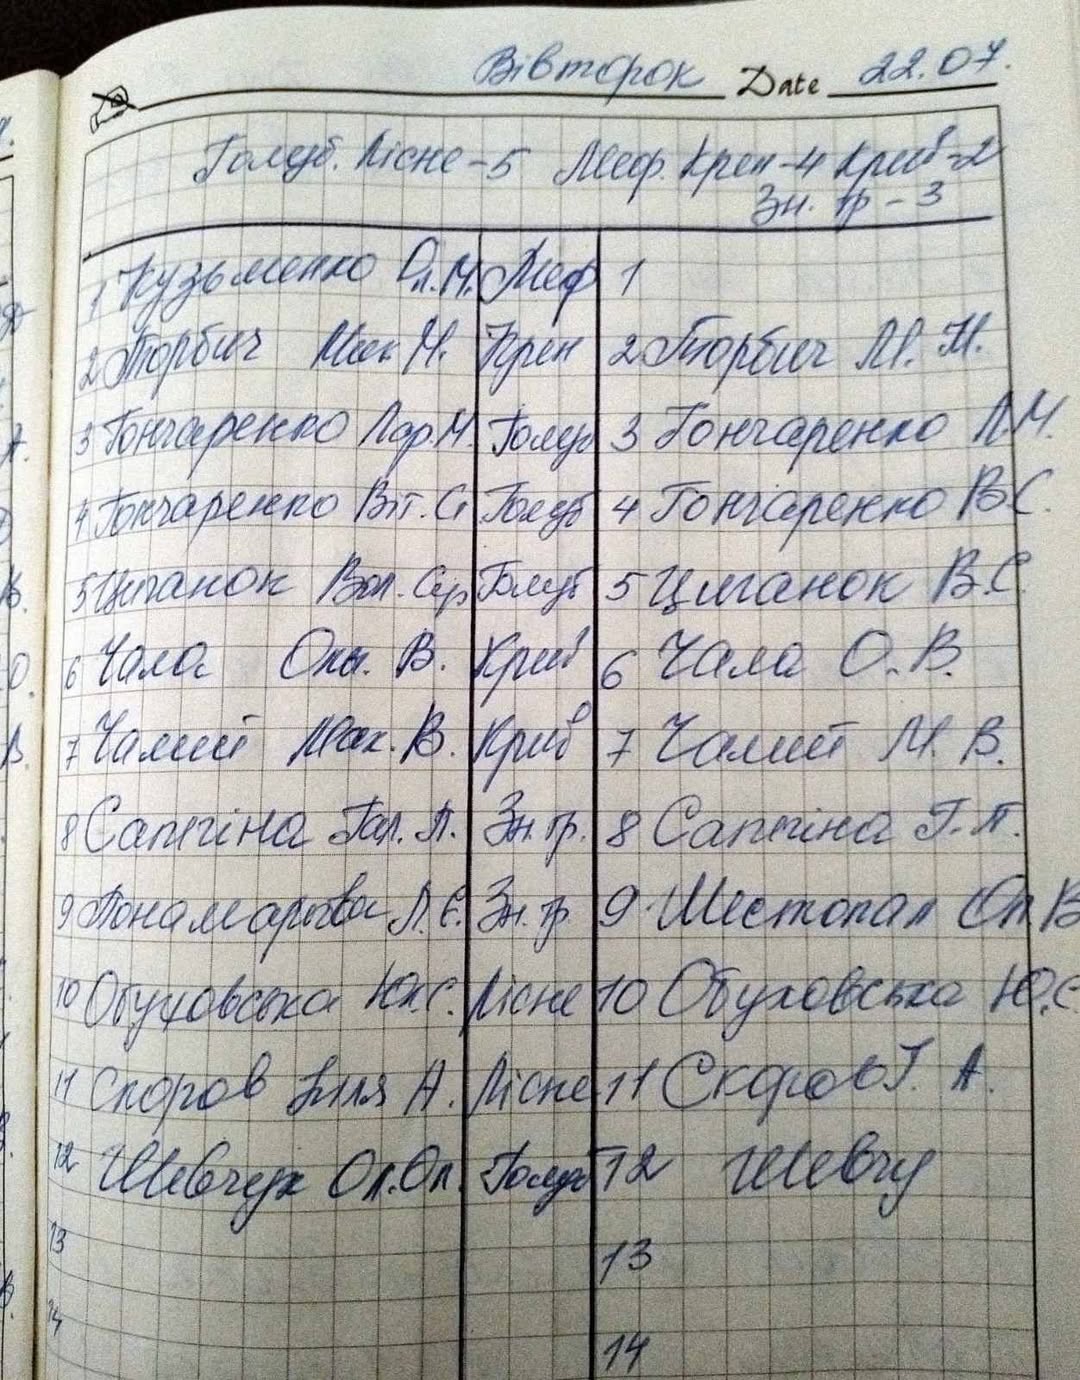 Вівторок Date 22.07.
Голуб. Лісне-5 Меф. Крем-4 Крив-2
Зн. гр-3
1 Кузьменко Ол.М. Меф 1
2 Торбич Мак М. Крем 2 Торбич М. М.
3 Гончаренко Лар.М. Голуб 3 Гончаренко Л.М.
4 Гончаренко Віт. Сг Голуб 4 Гончаренко В.С.
5 Циганок Вол. Сер Голуб 5 Циганок В.С.
6 Чала Окс. В. Крив 6 Чала О.В.
7 Чалий Мак. В. Крив 7 Чалий М. В.
8 Сапгіна Гал. П. Зн. гр. 8 Сапгіна Г. П.
9 Понамарьова Л. Є. Зн. гр. 9. Шестопал Ол. В
10 Обуховська Юл.С. Лісне 10 Обуховська Ю.С
11 Скоров Ілля А. Лісне 11 Скоров І. А.
12 Шевчук Ол.Ол. Голуб 12 Шевчу
13 13
14 14